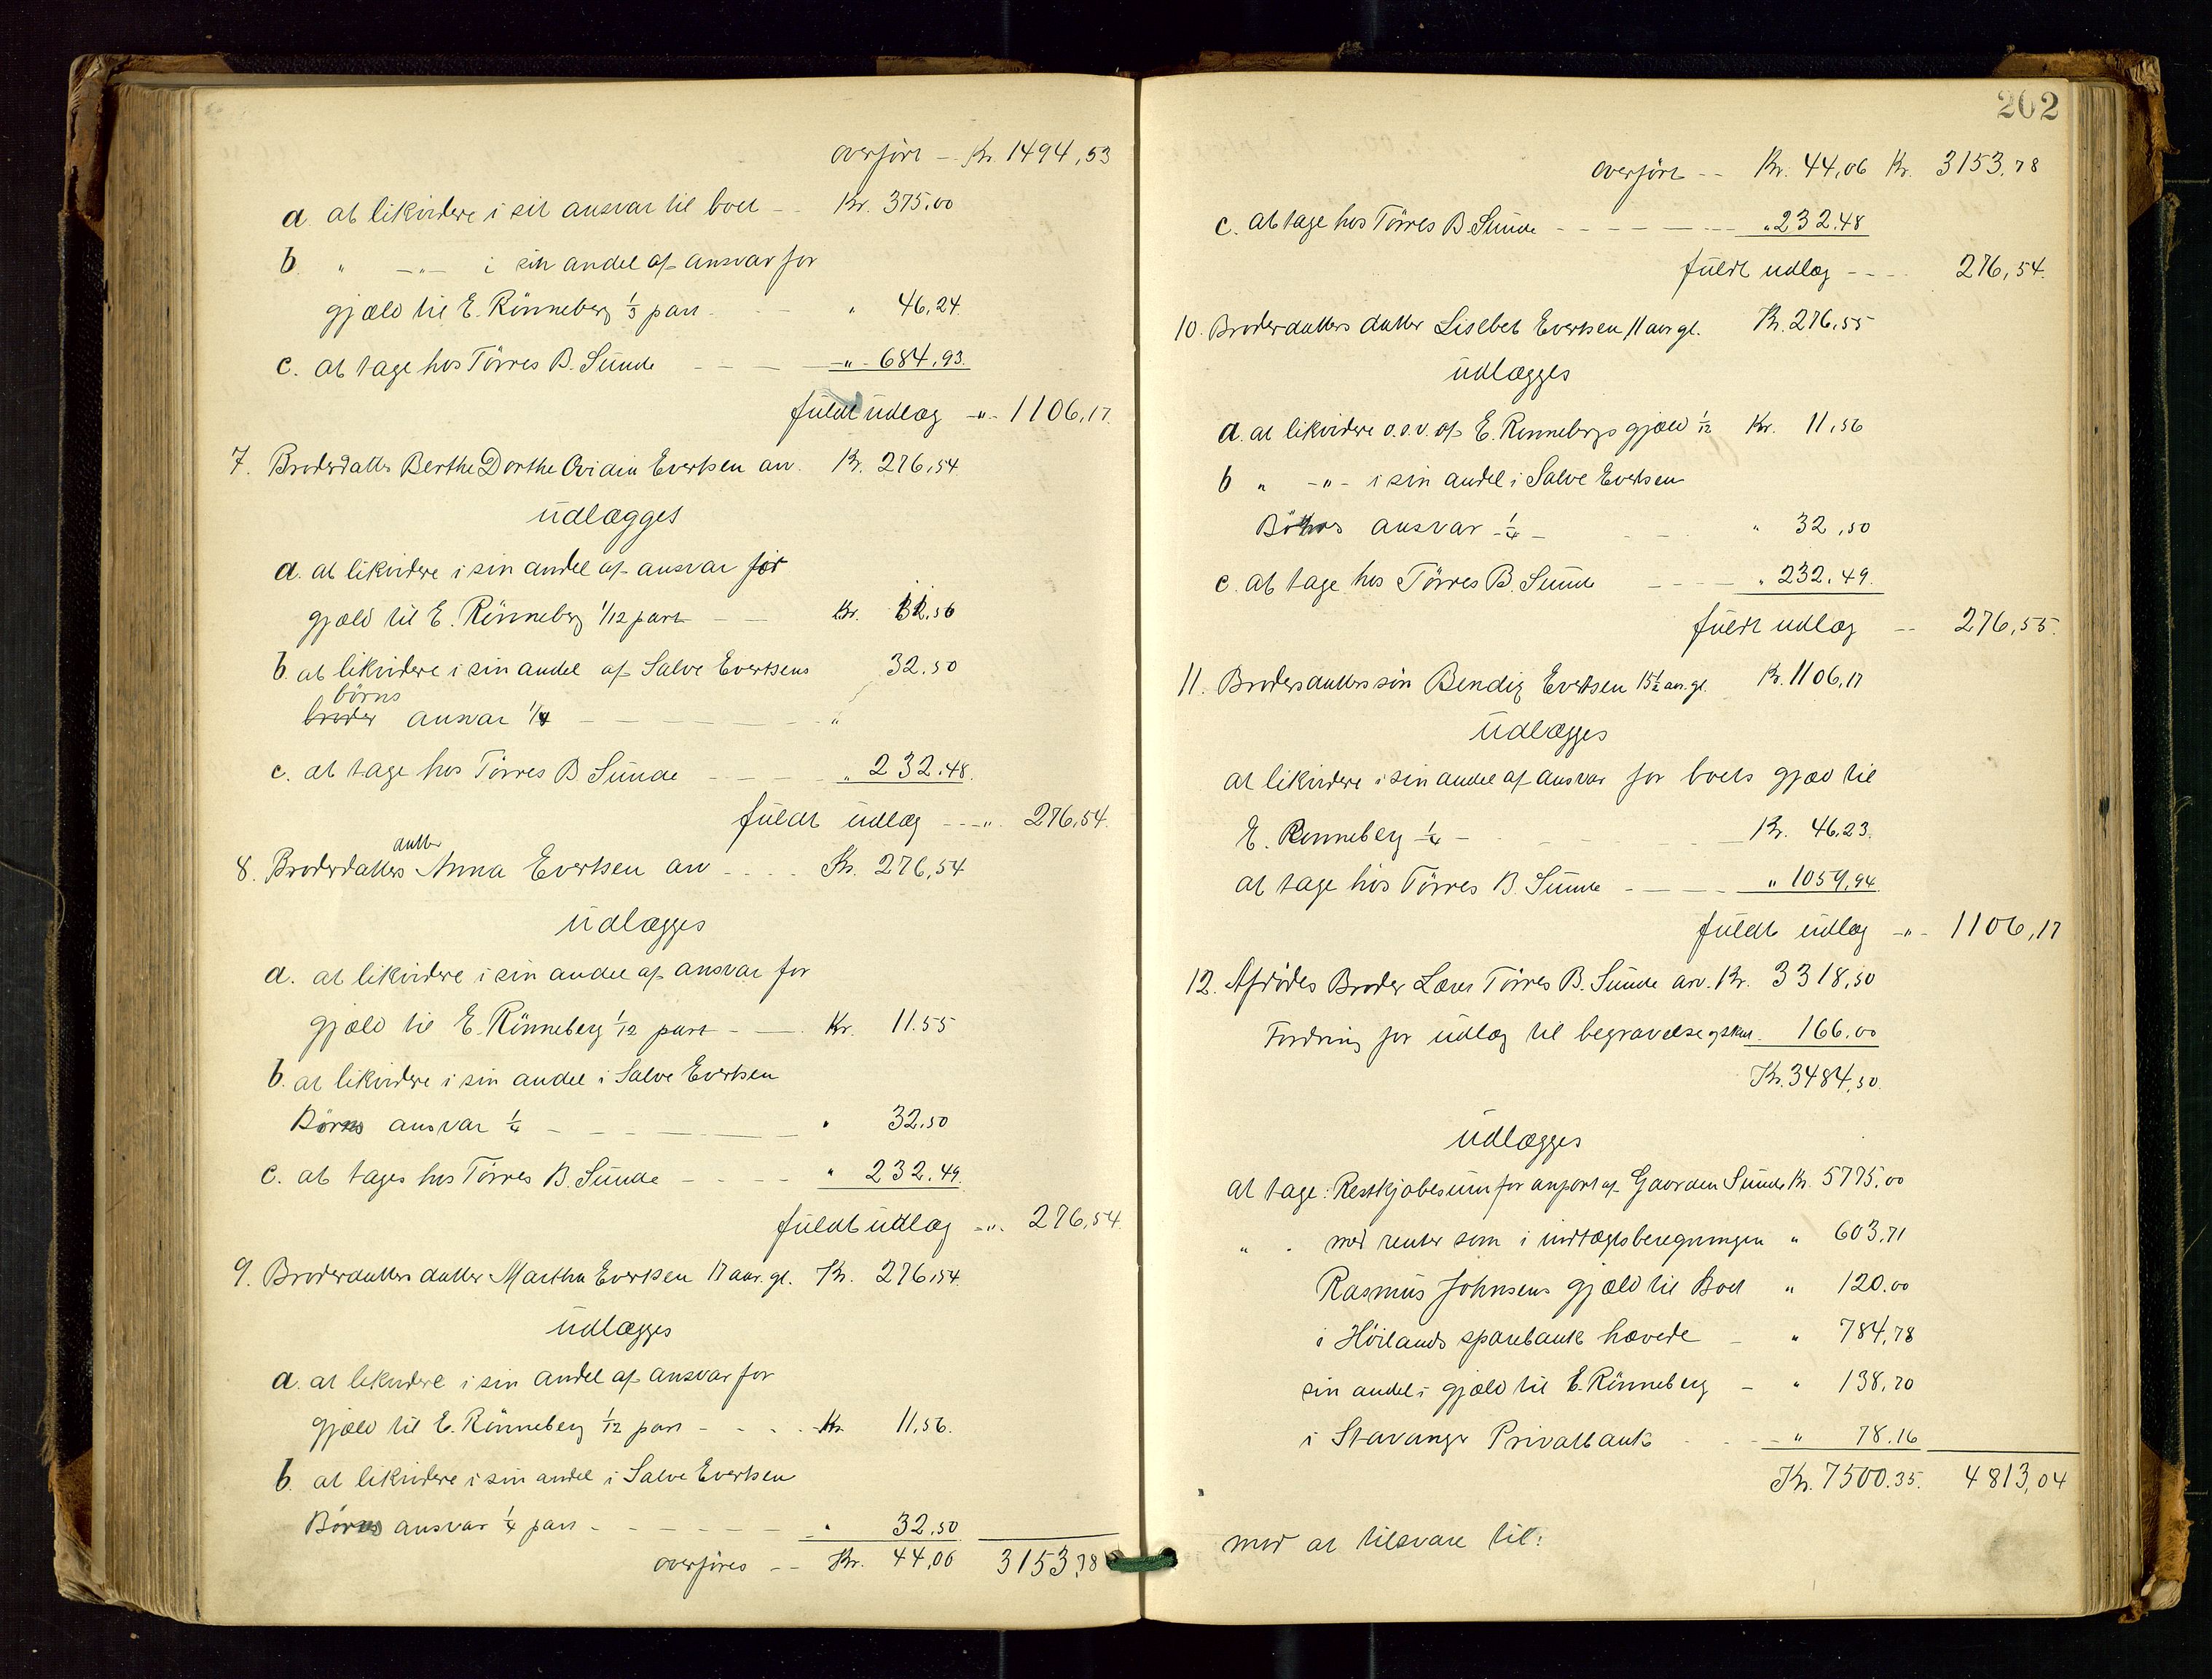 overført – Kr. 1494,53
a. at likvidere i sit ansvar til boet – Kr. 375,00
b. " –"– i sin andel af ansvar for
gjæld til E. Rönneberg 1/3 part – " 46,24
c. at tage hos Törres B. Sünde – – – " 684,93.
füldt üdlæg –"– 1106,17.
7. Broderdatter Berthe Dorthe Ovidia Evertsen arv. Kr. 276,54
üdlægges
a. at likvidere i sin andel af ansvar for
gjæld til E. Rönneberg 1/12 part – – Kr. 11,56
b. at likvidere i sin andel af Salve Evertsens 32,50
börns
broder ansvar 1/4 – – – – "
c. at tage hos Törres B. Sünde – – – " 232,48.
füldt üdlæg – – –". 276,54.
datter
8. Broderdatters Anna Evertsen arv – – – Kr. 276,54
üdlægges
a. at likvidere i sin andel af ansvar for
gjæld til E. Rönneberg 1/12 part – – Kr. 11.55
b. at likvidere i sin andel i Salve Evertsen
Börns ansvar 1/4 – – – – " 32,50
c. at tages hos Törres B. Sünde – – – " 232,49.
füldt üdlæg –". 276,54.
9. Broderdatters datter Martha Evertsen 17 aar. gl. Kr. 276,54.
üdlægges
a. at likvidere i sin andel af ansvar for
gjæld til E. Rönneberg 1/12 part – – – Kr. 11,56.
b. at likvidere i sin andel i Salve Evertsen
Börns ansvar 1/4 part – – – – " 32,50
overföres – – Kr. 44,06 3153,78
202
overført – – Kr. 44,06 Kr. 3153,78
c. at tage hos Törres B. Sünde – – – – " 232,48
füldt udlæg – – – 276,54.
10. Broderdatters datter Lisebet Evertsen 11 aar gl. Kr. 276,55
üdlægges
a. at likvidere o.s.v. af E. Rennebergs gjæld 1/12 Kr. 11,56
b " –"– i sin andel i Salve Evertsen
Börns ansvar 1/4 – – – " 32,50
c. at tage hos Törres B. Sünde – – – " 232,49.
füldt udlæg – – 276,55.
11. Brodersdatters sön Bendix Evertsen 15 1/2 aar. gl. Kr. 1106,17
Üdlægges
at likvidere i sin andel af ansvar for boets gjæld til
E. Renneberg 1/4 – – – – Kr. 46,23.
at tage hos Törres B. Sünde – – – – " 1059,94.
füldt üdlæg –"– 1106,17
12. Afdödes Broder Törres B. Sünde arv. Kr. 3318,50
Fordring for üdlæg til begravelse 166,00
Kr. 3484,50.
üdlægges
at tage: Restkjøbesum for anpart af Gaarden Sünde Kr. 5775,00
" . med renter som i indtægtsberegningen " 603,71
Rasmüs Johnsens gjæld til Boet " 120.00
i Höilands sparebank hævede – " 784,78
sin andel i gjæld til E. Rönneberg – " 138,70
i Stavanger Privatbank – – – " 78.16
Kr. 7500.35. 4813,04
mod at tilsvare til: